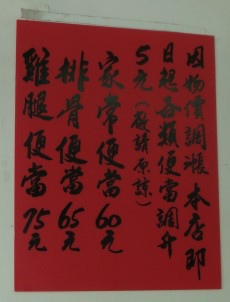 因物價調漲本店即
日起各類便當調升
5元(敬請原諒)
家常便當60元
排骨便當65元
雞腿便當75元